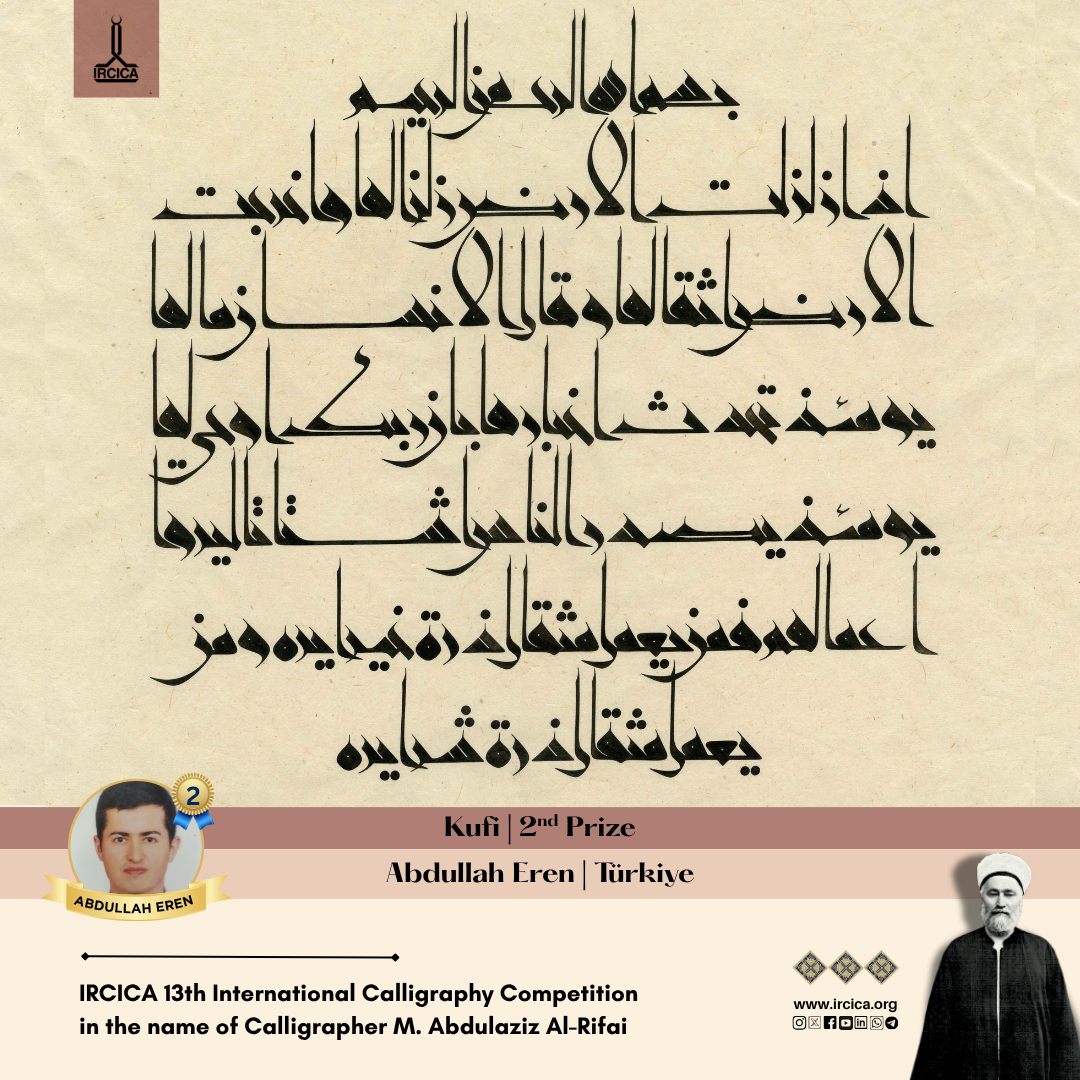 IRCICA
بسم الله الرحمن الرحيم
اذا زلزلت الارض زلزالها واخرجت
الارض اثقالها وقال الانسان ما لها
يومئذ تحدث اخبارها بان ربك اوحى لها
يومئذ يصدر الناس اشتاتا ليروا
اعمالهم فمن يعمل مثقال ذرة خيرا يره ومن
يعمل مثقال ذرة شرا يره
2
ABDULLAH EREN
Kufi | 2nd Prize
Abdullah Eren | Türkiye
IRCICA 13th International Calligraphy Competition
in the name of Calligrapher M. Abdulaziz Al-Rifai
www.ircica.org